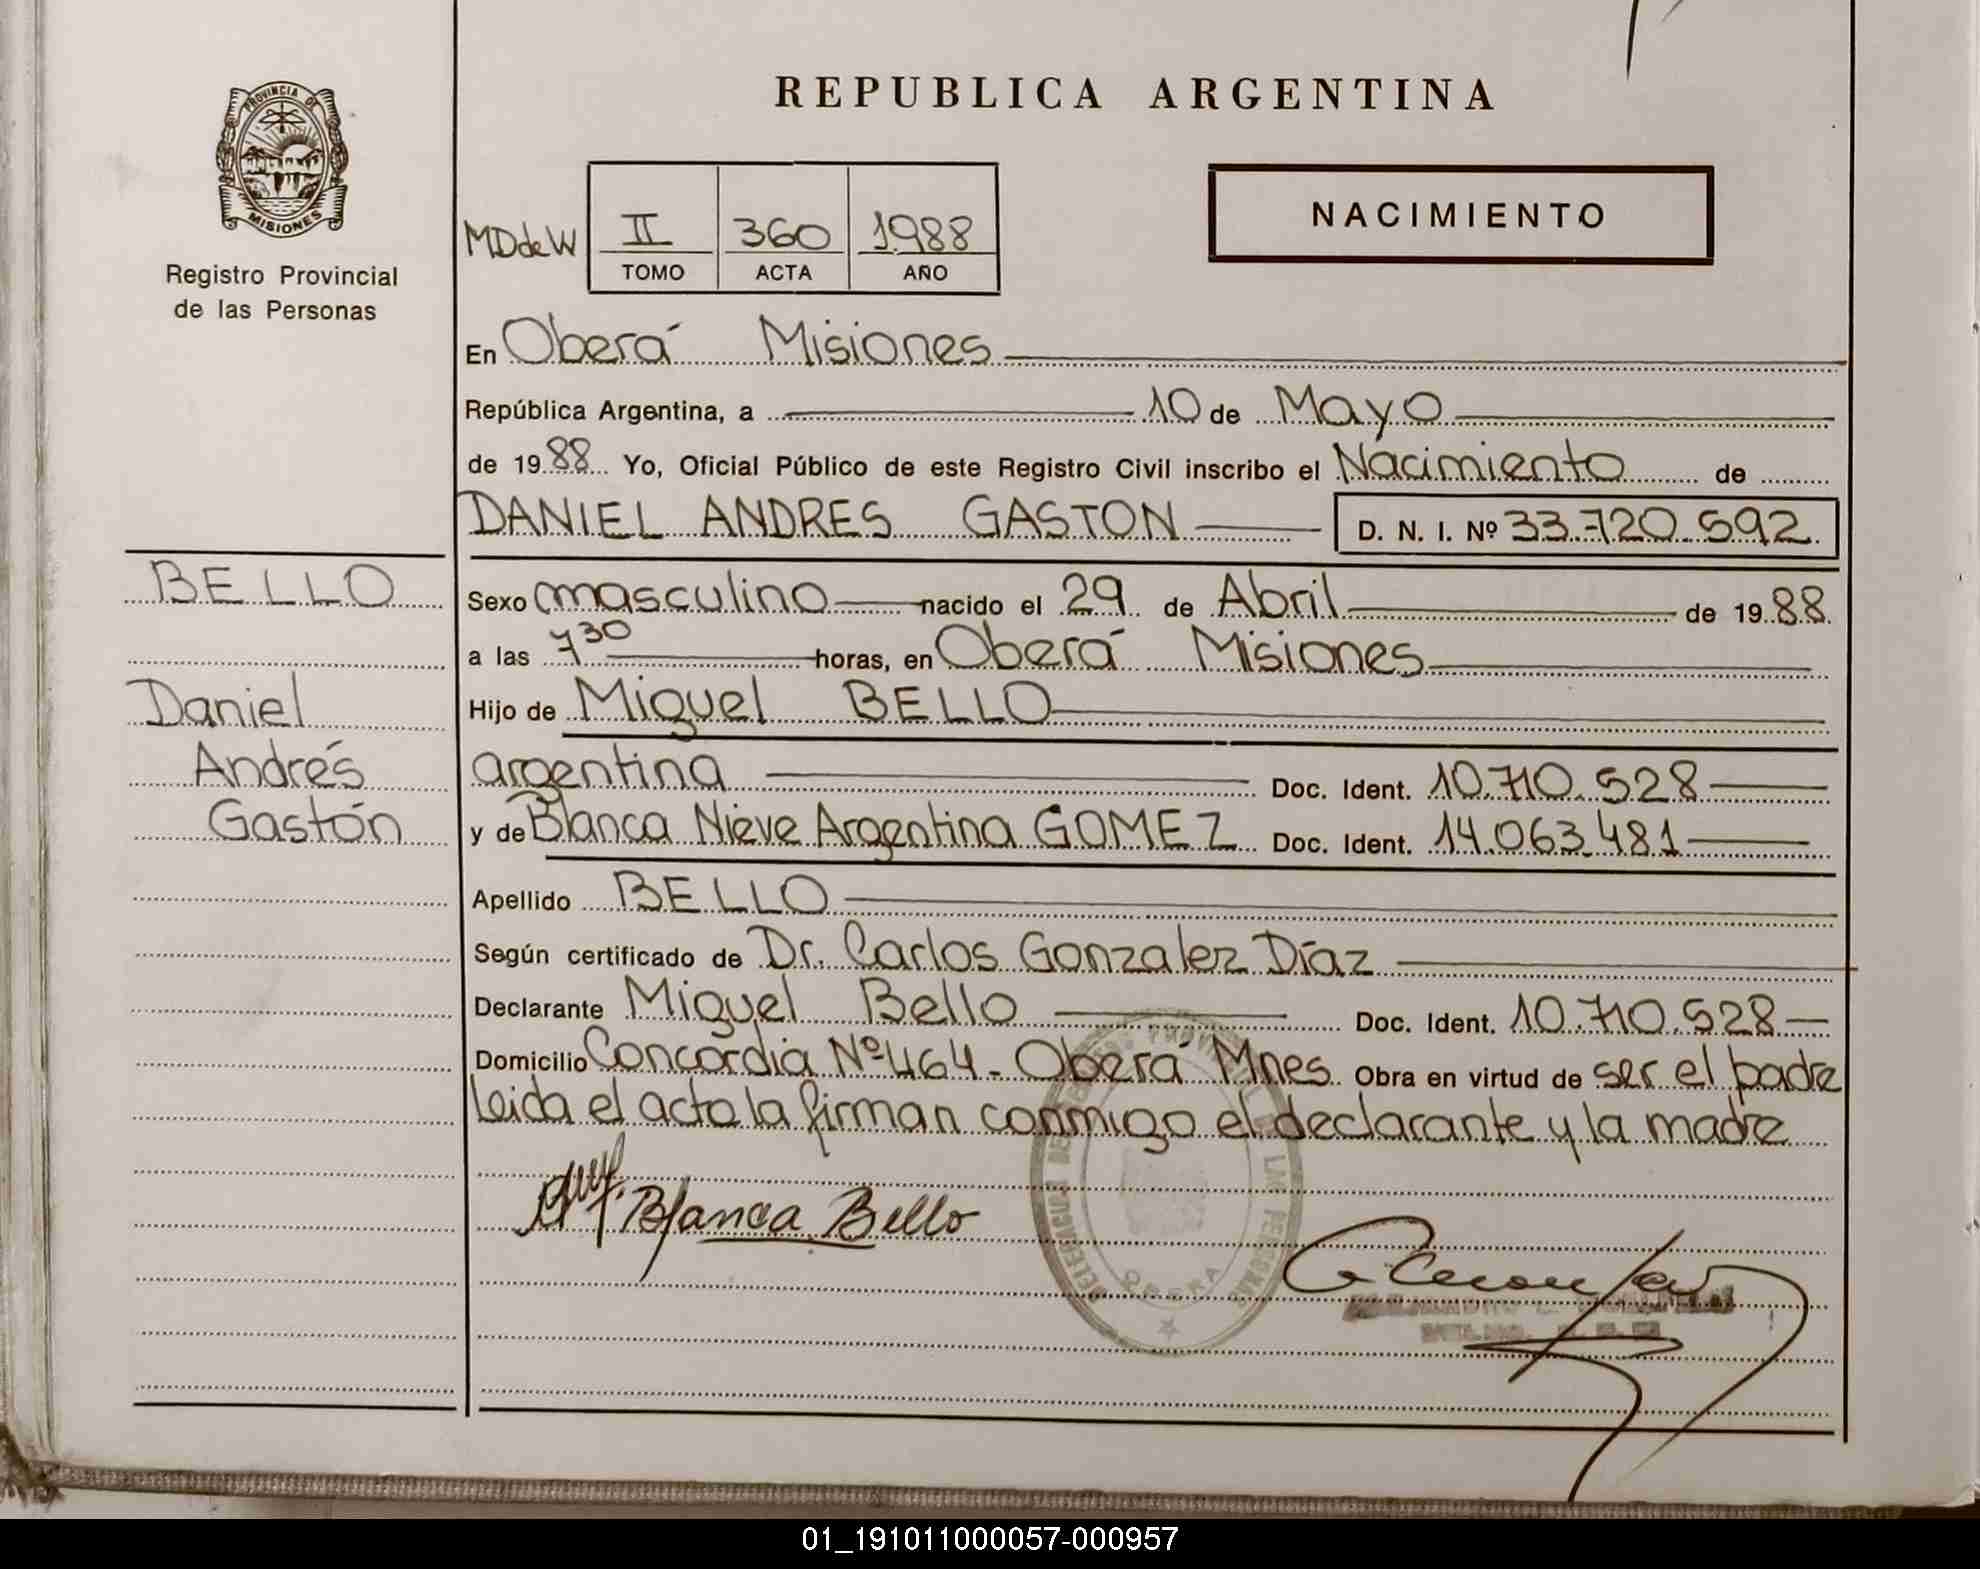 PROVINCIA DE
MISIONES
Registro Provincial
de las Personas
REPUBLICA ARGENTINA
NACIMIENTO
MDdeW
II 360 1988
TOMO ACTA AÑO
En Oberá Misiones
República Argentina, a 10 de Mayo
de 1988 Yo, Oficial Público de este Registro Civil inscribo el Nacimiento de
DANIEL ANDRES GASTON D. N. I. Nº 33.720.592.
BELLO
Daniel
Andrés
Gastón
Sexo masculino nacido el 29 de Abril de 1988.
a las 7 30 horas, en Oberá Misiones
Hijo de Miguel BELLO
argentina Doc. Ident. 10.710.528
y de Blanca Nieve Argentina GOMEZ Doc. Ident. 14.063.481
Apellido BELLO
Según certificado de Dr. Carlos Gonzalez Díaz
Declarante Miguel Bello Doc. Ident. 10.710.528
Domicilio Concordia Nº 464 - Oberá Mnes. Obra en virtud de ser el padre
leida el acta la firman conmigo el declarante y la madre
Blanca Bello
OBERA
01_191011000057-000957